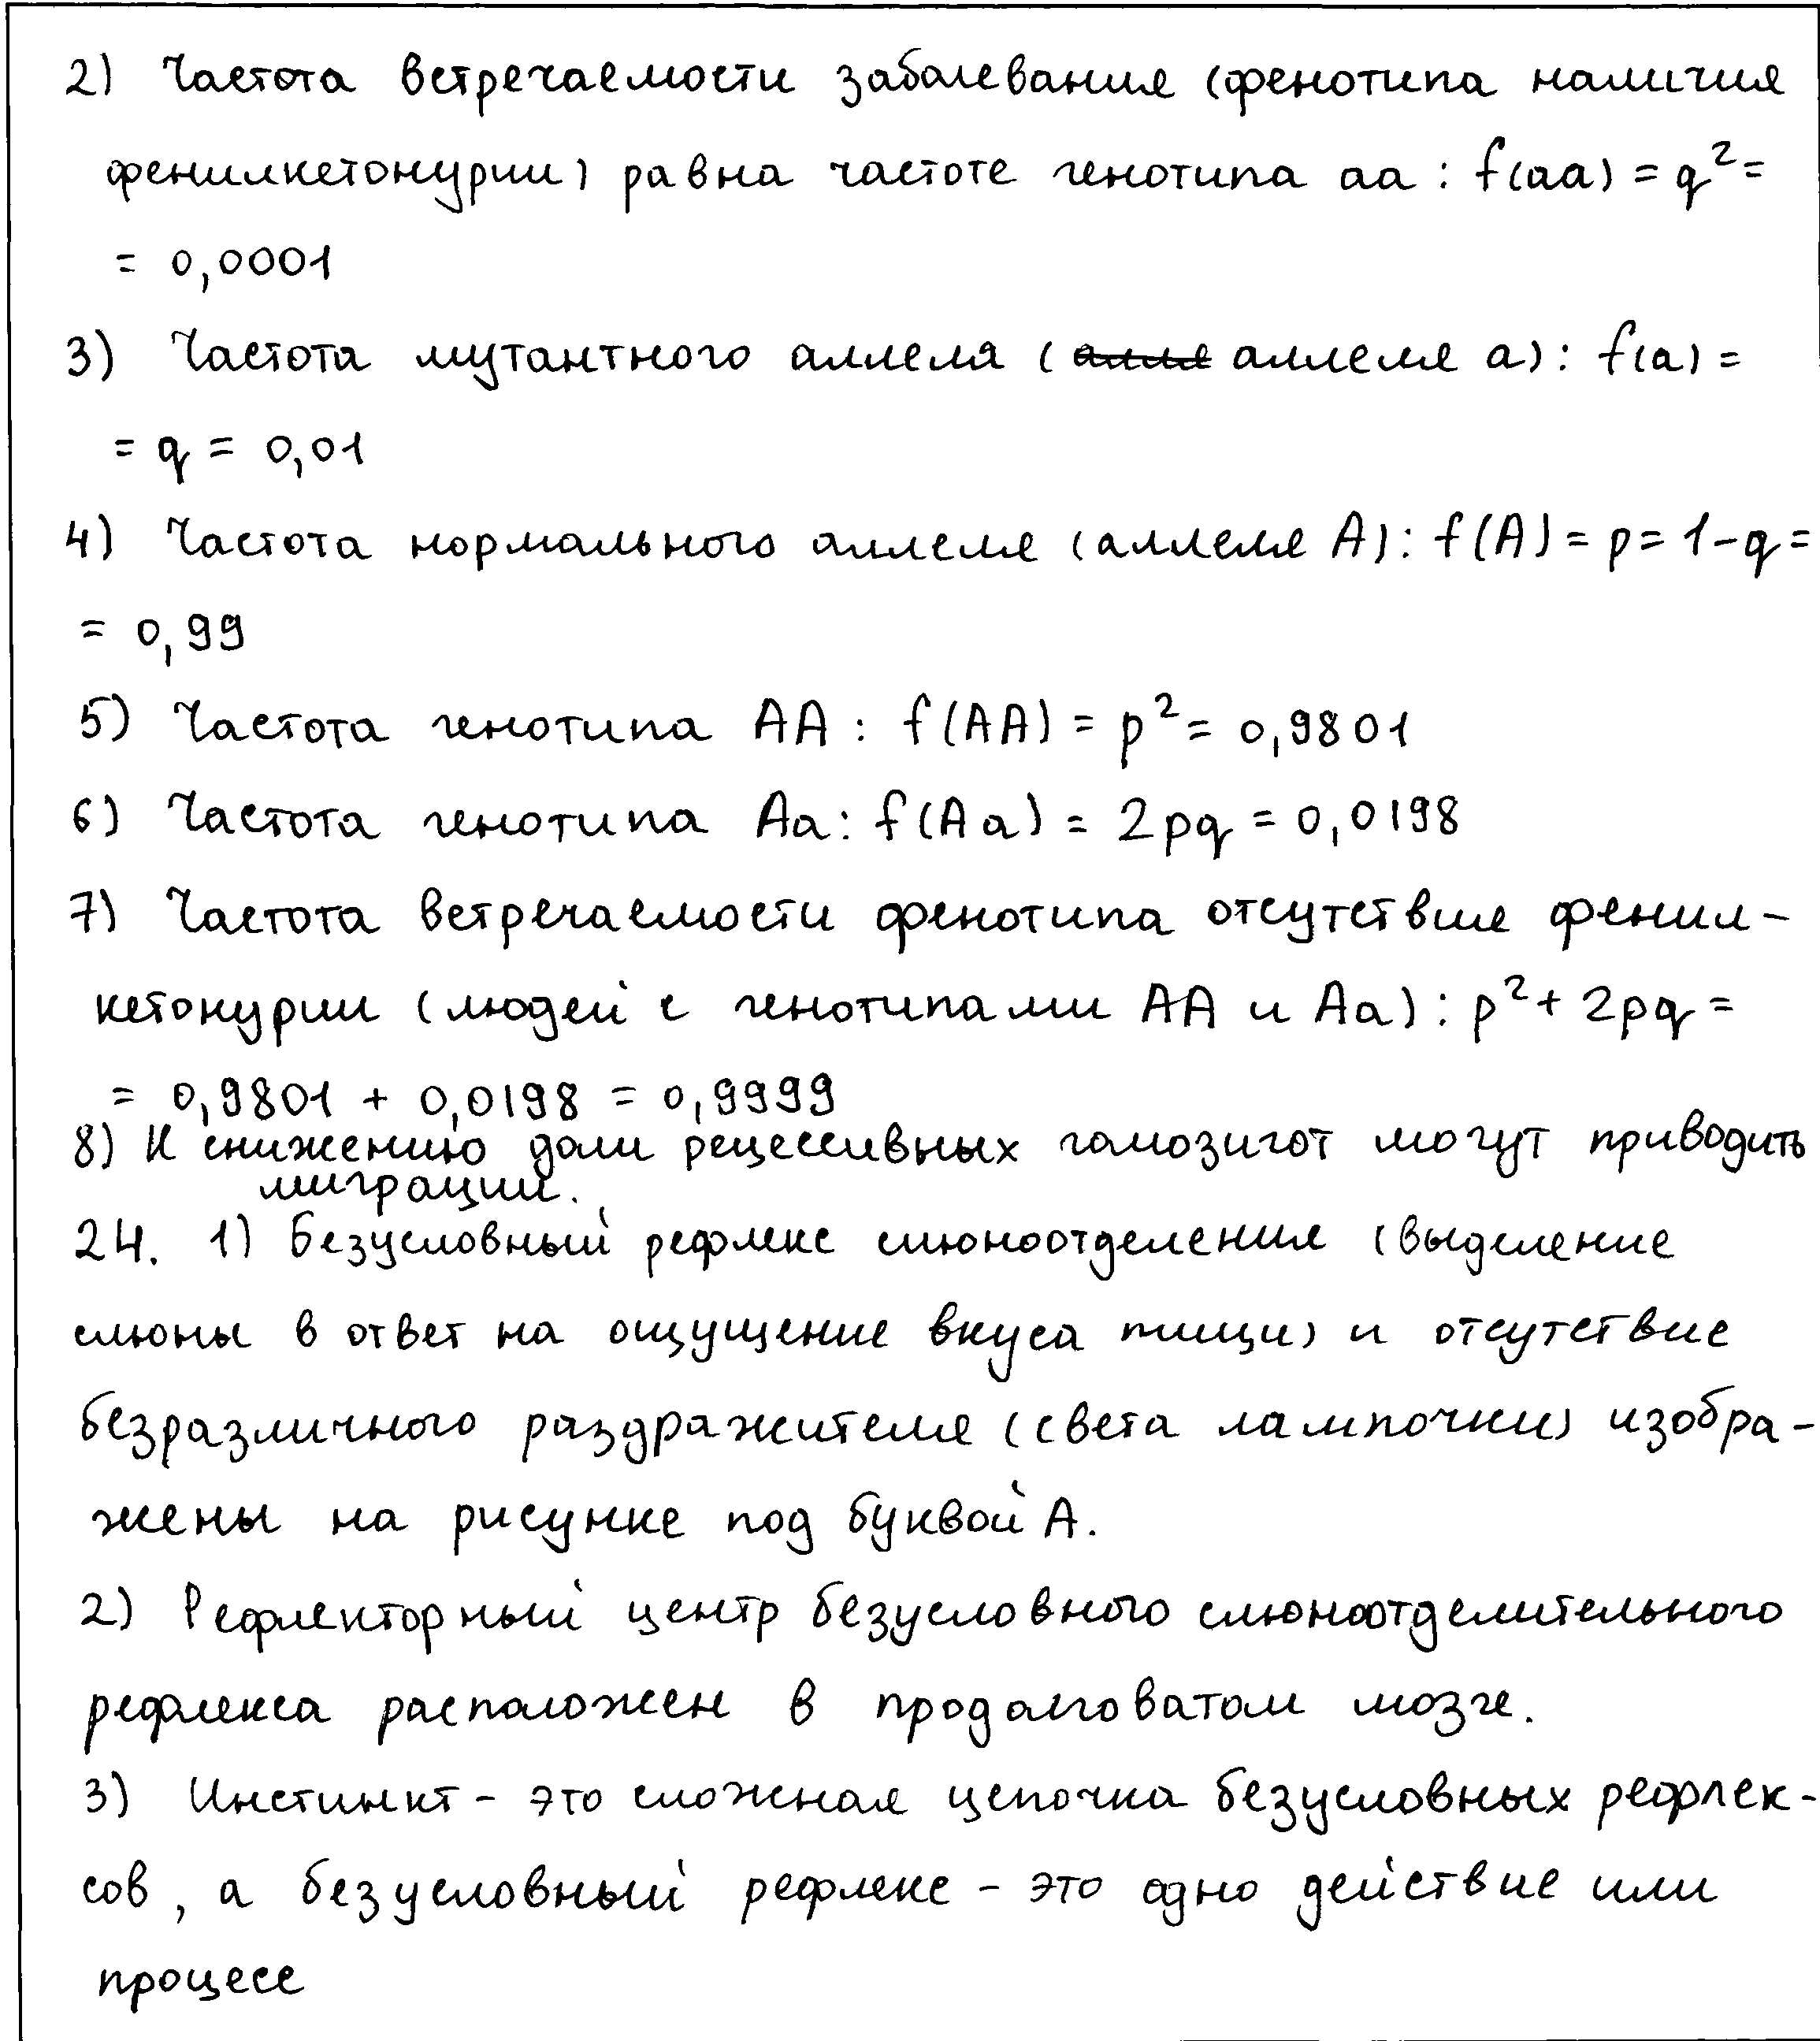 2) Частота встречаемости заболевания (фенотипа наличия
фенилкетонурии) равна частоте генотипа aa : f(aa) = q² =
= 0,0001
3) Частота мутантного аллеля (алле аллеля a): f(a) =
= q = 0,01
4) Частота нормального аллеля (аллеля A): f(A) = p = 1-q =
= 0,99
5) Частота генотипа AA : f(AA) = p² = 0,9801
6) Частота генотипа Aa: f(Aa) = 2pq = 0,0198
7) Частота встречаемости фенотипа отсутствия фенил-
кетонурии (людей с генотипами AA и Aa): p² + 2pq =
= 0,9801 + 0,0198 = 0,9999
8) К снижению доли рецессивных гомозигот могут приводить
миграции.
24. 1) Безусловный рефлекс слюноотделения (выделение
слюны в ответ на ощущение вкуса пищи) и отсутствие
безразличного раздражителя (света лампочки) изобра-
жены на рисунке под буквой А.
2) Рефлекторный центр безусловного слюноотделительного
рефлекса расположен в продолговатом мозге.
3) Инстинкт - это сложная цепочка безусловных рефлек-
сов, а безусловный рефлекс - это одно действие или
процесс